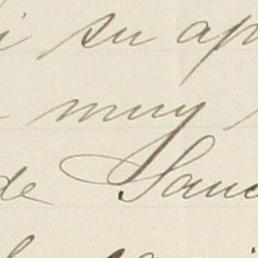 i su ap
muy
de Sanc